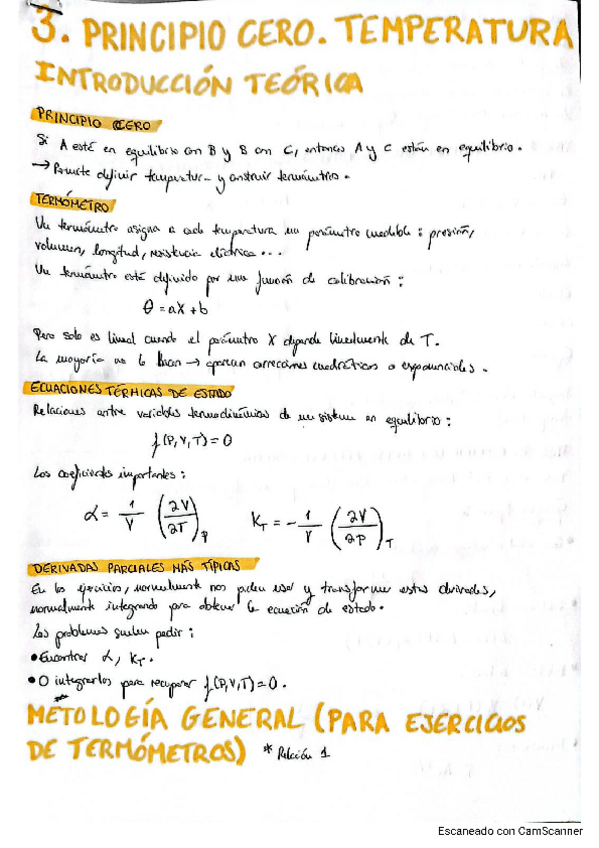 3. PRINCIPIO CERO. TEMPERATURA
INTRODUCCIÓN TEÓRICA
PRINCIPIO CERO
Si A está en equilibrio con B y B con C, entonces A y C están en equilibrio.
→ Permite definir temperatura y construir termómetro.
TERMÓMETRO
Un termómetro asigna a cada temperatura un parámetro medible: presión,
volumen, longitud, resistencia eléctrica...
Un termómetro está definido por una función de calibración:
θ = aX + b
Pero solo es lineal cuando el parámetro X depende linealmente de T.
La mayoría no lo hacen → aparecen correcciones cuadráticas o exponenciales.
ECUACIONES TÉRMICAS DE ESTADO
Relaciones entre variables termodinámicas de un sistema en equilibrio:
f(P,V,T) = 0
Los coeficientes importantes:
α = 1/V (∂V/∂T)_P    K_T = - 1/V (∂V/∂P)_T
DERIVADAS PARCIALES MÁS TÍPICAS
En los ejercicios, normalmente nos piden usar y transformar estas derivadas,
normalmente integrando para obtener la ecuación de estado.
Los problemas suelen pedir:
• Encontrar α, K_T.
• O integrarlos para recuperar f(P,V,T) = 0.
METOLOGÍA GENERAL (PARA EJERCICIOS
DE TERMÓMETROS) * Relación 1
Escaneado con CamScanner